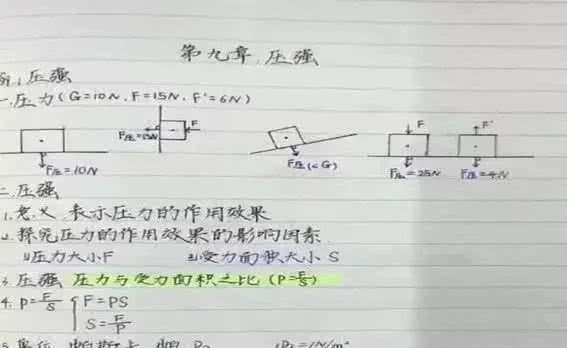 第九章 压强
§9.1 压强
一.压力(G=10N. F=15N. F'=6N)
F压=10N
F压=15N F
F压(<G)
F F压=25N
F' F压=4N
二.压强
1.意义 表示压力的作用效果
2.探究压力的作用效果的影响因素
①压力大小F ②受力面积大小 S
3.压强 压力与受力面积之比(P=F/S)
4. P=F/S { F=PS
S=F/P
5.单位 帕斯卡 帕 Pa 1Pa=1N/m²